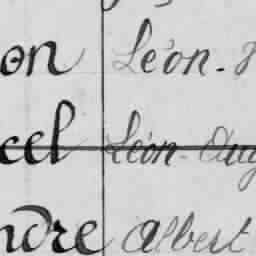 on Léon.
cel Léon-Aug
ndre Albert